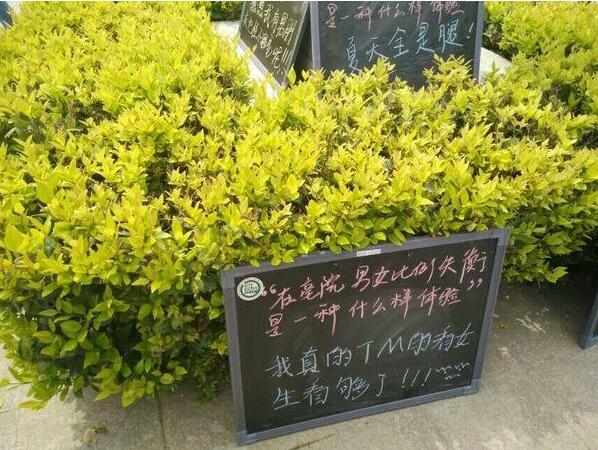 是一种什么样体验
夏天全是腿！
“在亳院 男女比例失衡
是一种什么样体验”
我真的TM的看女
生看够了!!!